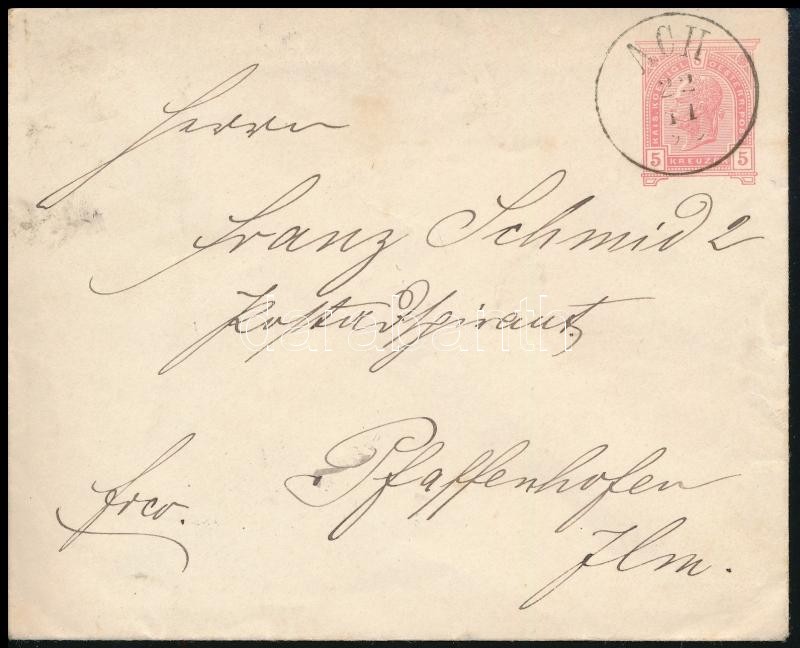 ACH
22
11
5
KAIS. KOENIGL. OESTERR. POST
5 KREUZER 5
Herrn
Franz Schmid 2
Postadspirant.
darabanth
frco. Pfaffenhofen
Ilm.